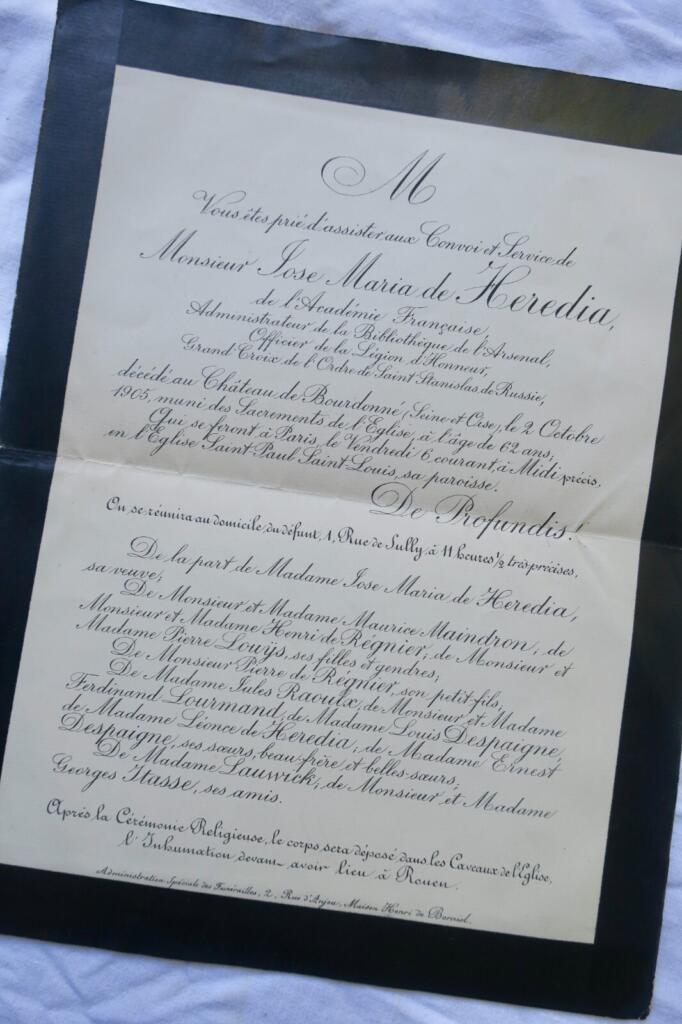 M
Vous êtes prié d'assister aux Convoi et Service de
Monsieur Jose Maria de Heredia,
de l'Académie Française,
Administrateur de la Bibliothèque de l'Arsenal,
Officier de la Légion d'Honneur,
Grand Croix de l'Ordre de Saint Stanislas de Russie,
décédé au Château de Bourdonné (Seine et Oise), le 2 Octobre
1905, muni des Sacrements de l'Eglise, à l'âge de 62 ans;
Qui se feront à Paris, le Vendredi 6 courant, à Midi précis,
en l'Eglise Saint Paul Saint Louis, sa paroisse.
De Profundis!
On se réunira au domicile du défunt, 1, Rue de Sully à 11 heures 1/2 très précises.
De la part de Madame Jose Maria de Heredia,
sa veuve;
De Monsieur et Madame Maurice Maindron; de
Monsieur et Madame Henri de Régnier; de Monsieur et
Madame Pierre Louÿs, ses filles et gendres;
De Monsieur Pierre de Régnier, son petit-fils;
De Madame Jules Raoulx, de Monsieur et Madame
Ferdinand Lourmand, de Madame Louis Despaigne,
de Madame Léonce de Heredia, de Madame Ernest
Despaigne, ses sœurs, beau-frère et belles-sœurs;
De Madame Lauwick; de Monsieur et Madame
Georges Itasse, ses amis.
Après la Cérémonie Religieuse, le corps sera déposé dans les Caveaux de l'Eglise,
l'Inhumation devant avoir lieu à Rouen.
Administration Spéciale des Funérailles, 2, Rue d'Anjou, Maison Henri de Borniol.